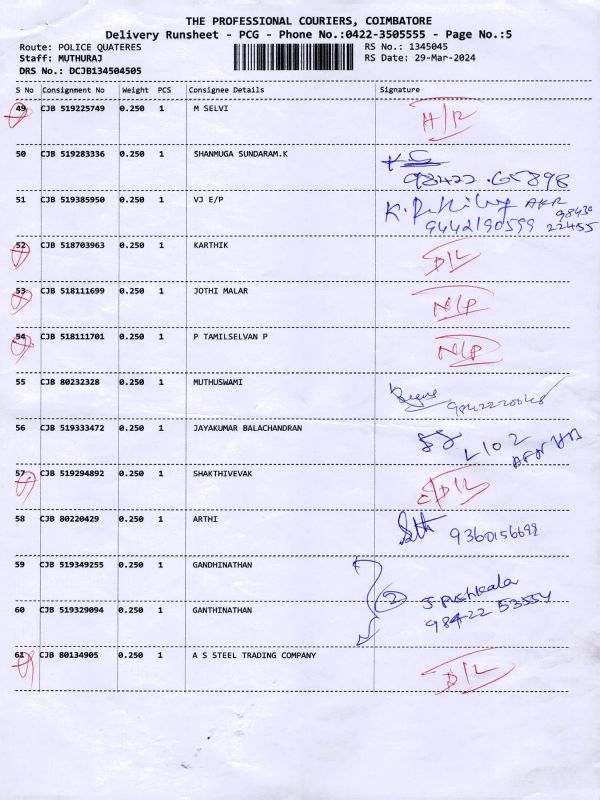 THE PROFESSIONAL COURIERS, COIMBATORE
Delivery Runsheet - PCG - Phone No.:0422-3505555 - Page No.:5
Route: POLICE QUATERES
RS No.: 1345045
Staff: MUTHURAJ
RS Date: 29-Mar-2024
DRS No.: DCJB134504505
S No Consignment No Weight PCS Consignee Details Signature
49 CJB 519225749 0.250 1 M SELVI
50 CJB 519283336 0.250 1 SHANMUGA SUNDARAM.K
98422.65898
51 CJB 519385950 0.250 1 VJ E/P
9442190599
52 CJB 518703963 0.250 1 KARTHIK D/L
53 CJB 518111699 0.250 1 JOTHI MALAR N/P
54 CJB 518111701 0.250 1 P TAMILSELVAN P N/P
55 CJB 80232328 0.250 1 MUTHUSWAMI
56 CJB 519333472 0.250 1 JAYAKUMAR BALACHANDRAN
57 CJB 519294892 0.250 1 SHAKTHIVEVAK D/L
58 CJB 80220429 0.250 1 ARTHI
59 CJB 519349255 0.250 1 GANDHINATHAN
2 J. Pushkala
60 CJB 519329094 0.250 1 GANTHINATHAN
98422 53554
61 CJB 80134905 0.250 1 A S STEEL TRADING COMPANY D/L